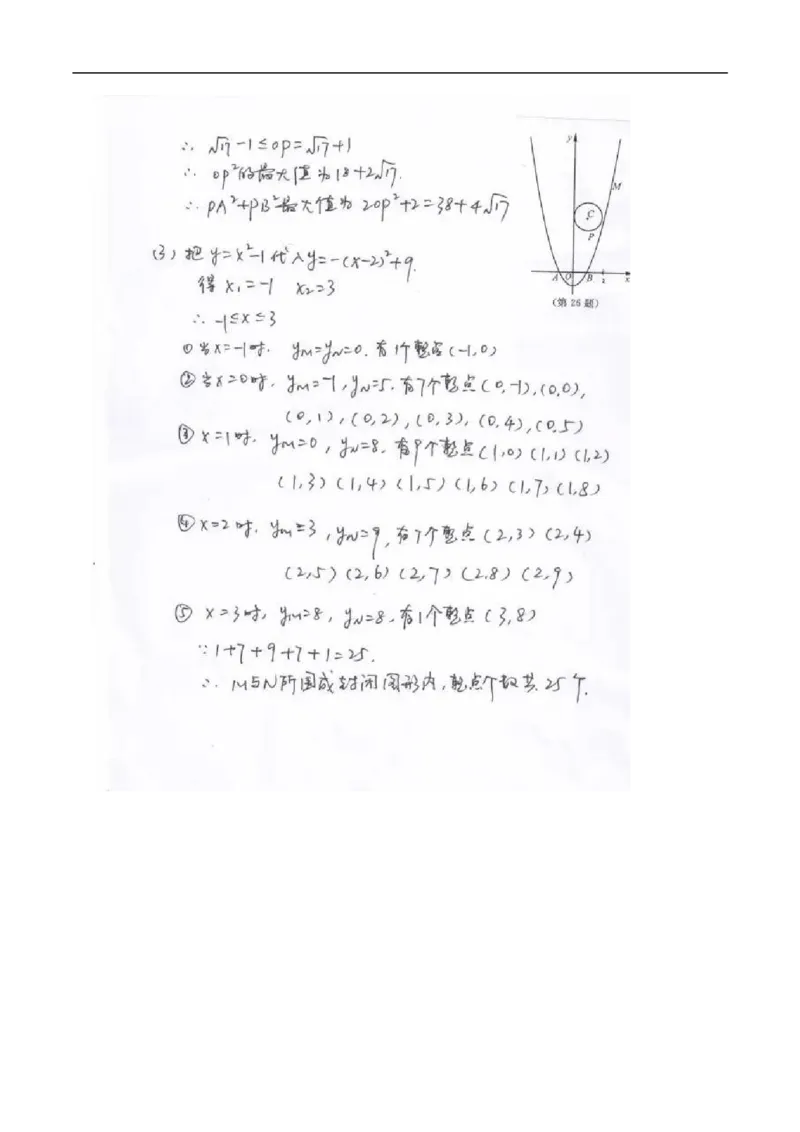 ∴ √17-1≤OP=√17+1
∴ OP²的最大值为18+2√17.
∴ PA²+PB²最大值为 2OP²+2=38+4√17
(3) 把y=x²-1代入y=-(x-2)²+9.
得 x₁=-1 x₂=3
∴ -1≤x≤3
① 当x=-1时. yM=yN=0. 有1个整点(-1,0)
② 当x=0时. yM=-1, yN=5. 有7个整点(0,-1),(0,0),
(0,1),(0,2),(0,3),(0,4),(0,5)
③ x=1时. yM=0, yN=8. 有9个整点(1,0)(1,1)(1,2)
(1,3)(1,4)(1,5)(1,6)(1,7)(1,8)
④ x=2时. yM=3, yN=9, 有7个整点(2,3)(2,4)
(2,5)(2,6)(2,7)(2,8)(2,9)
⑤ x=3时, yM=8, yN=8, 有1个整点(3,8)
∵1+7+9+7+1=25.
∴ M与N所围成封闭图形内,整点个数共25个.
y
M
C
P
A O B 2 x
(第26题)